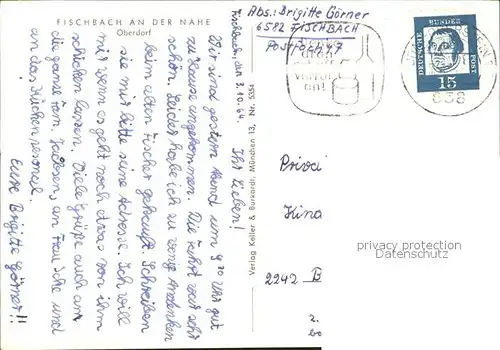 FISCHBACH AN DER NAHE
Oberdorf
Abs.: Brigitte Görner
6582 FISCHBACH
Postfach 47
Fischbach, den 3.10.64.
Ihr Lieben!
Wir sind gestern Abend um 9²⁰ Uhr gut
zu Hause angekommen. Die Fahrt war sehr
schön. Leider habe ich zu wenig Andenken
beim alten Fischer gekauft. Schreiben
sie mir bitte seine Adresse. Ich will
mir wenn es geht noch etwas von ihm
schicken lassen. Viele Grüße auch an
die ganze Fam. an Frau und
an das Küchenpersonal.
Eure Brigitte Görner!!
Verlag Keller & Burkardt, München 13, Nr. 5351
vorrat
DEUTSCHE BUNDESPOST
15
Privat
2242 B
privacy protection
AnsichtskartenCenter